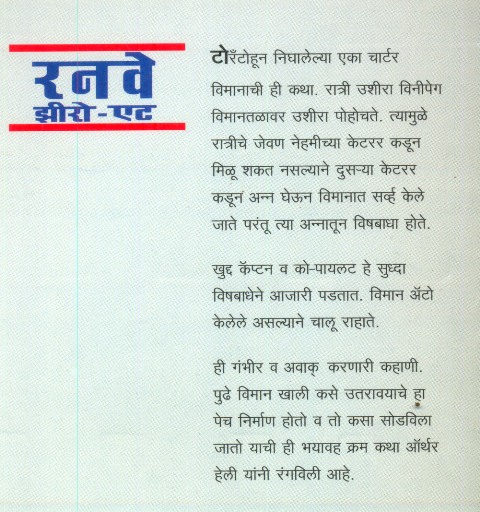 रनवे
झीरो-एट
टोरँटोहून निघालेल्या एका चार्टर
विमानाची ही कथा. रात्री उशीरा विनीपेग
विमानतळावर उशीरा पोहोचते. त्यामुळे
रात्रीचे जेवण नेहमीच्या केटरर कडून
मिळू शकत नसल्याने दुसऱ्या केटरर
कडून अन्न घेऊन विमानात सर्व्ह केले
जाते परंतू त्या अन्नातून विषबाधा होते.
खुद्द कॅप्टन व को-पायलट हे सुध्दा
विषबाधेने आजारी पडतात. विमान ॲटो
केलेले असल्याने चालू राहाते.
ही गंभीर व अवाक् करणारी कहाणी.
पुढे विमान खाली कसे उतरावयाचे हा
पेच निर्माण होतो व तो कसा सोडविला
जातो याची ही भयावह क्रम कथा ऑर्थर
हेली यांनी रंगविली आहे.